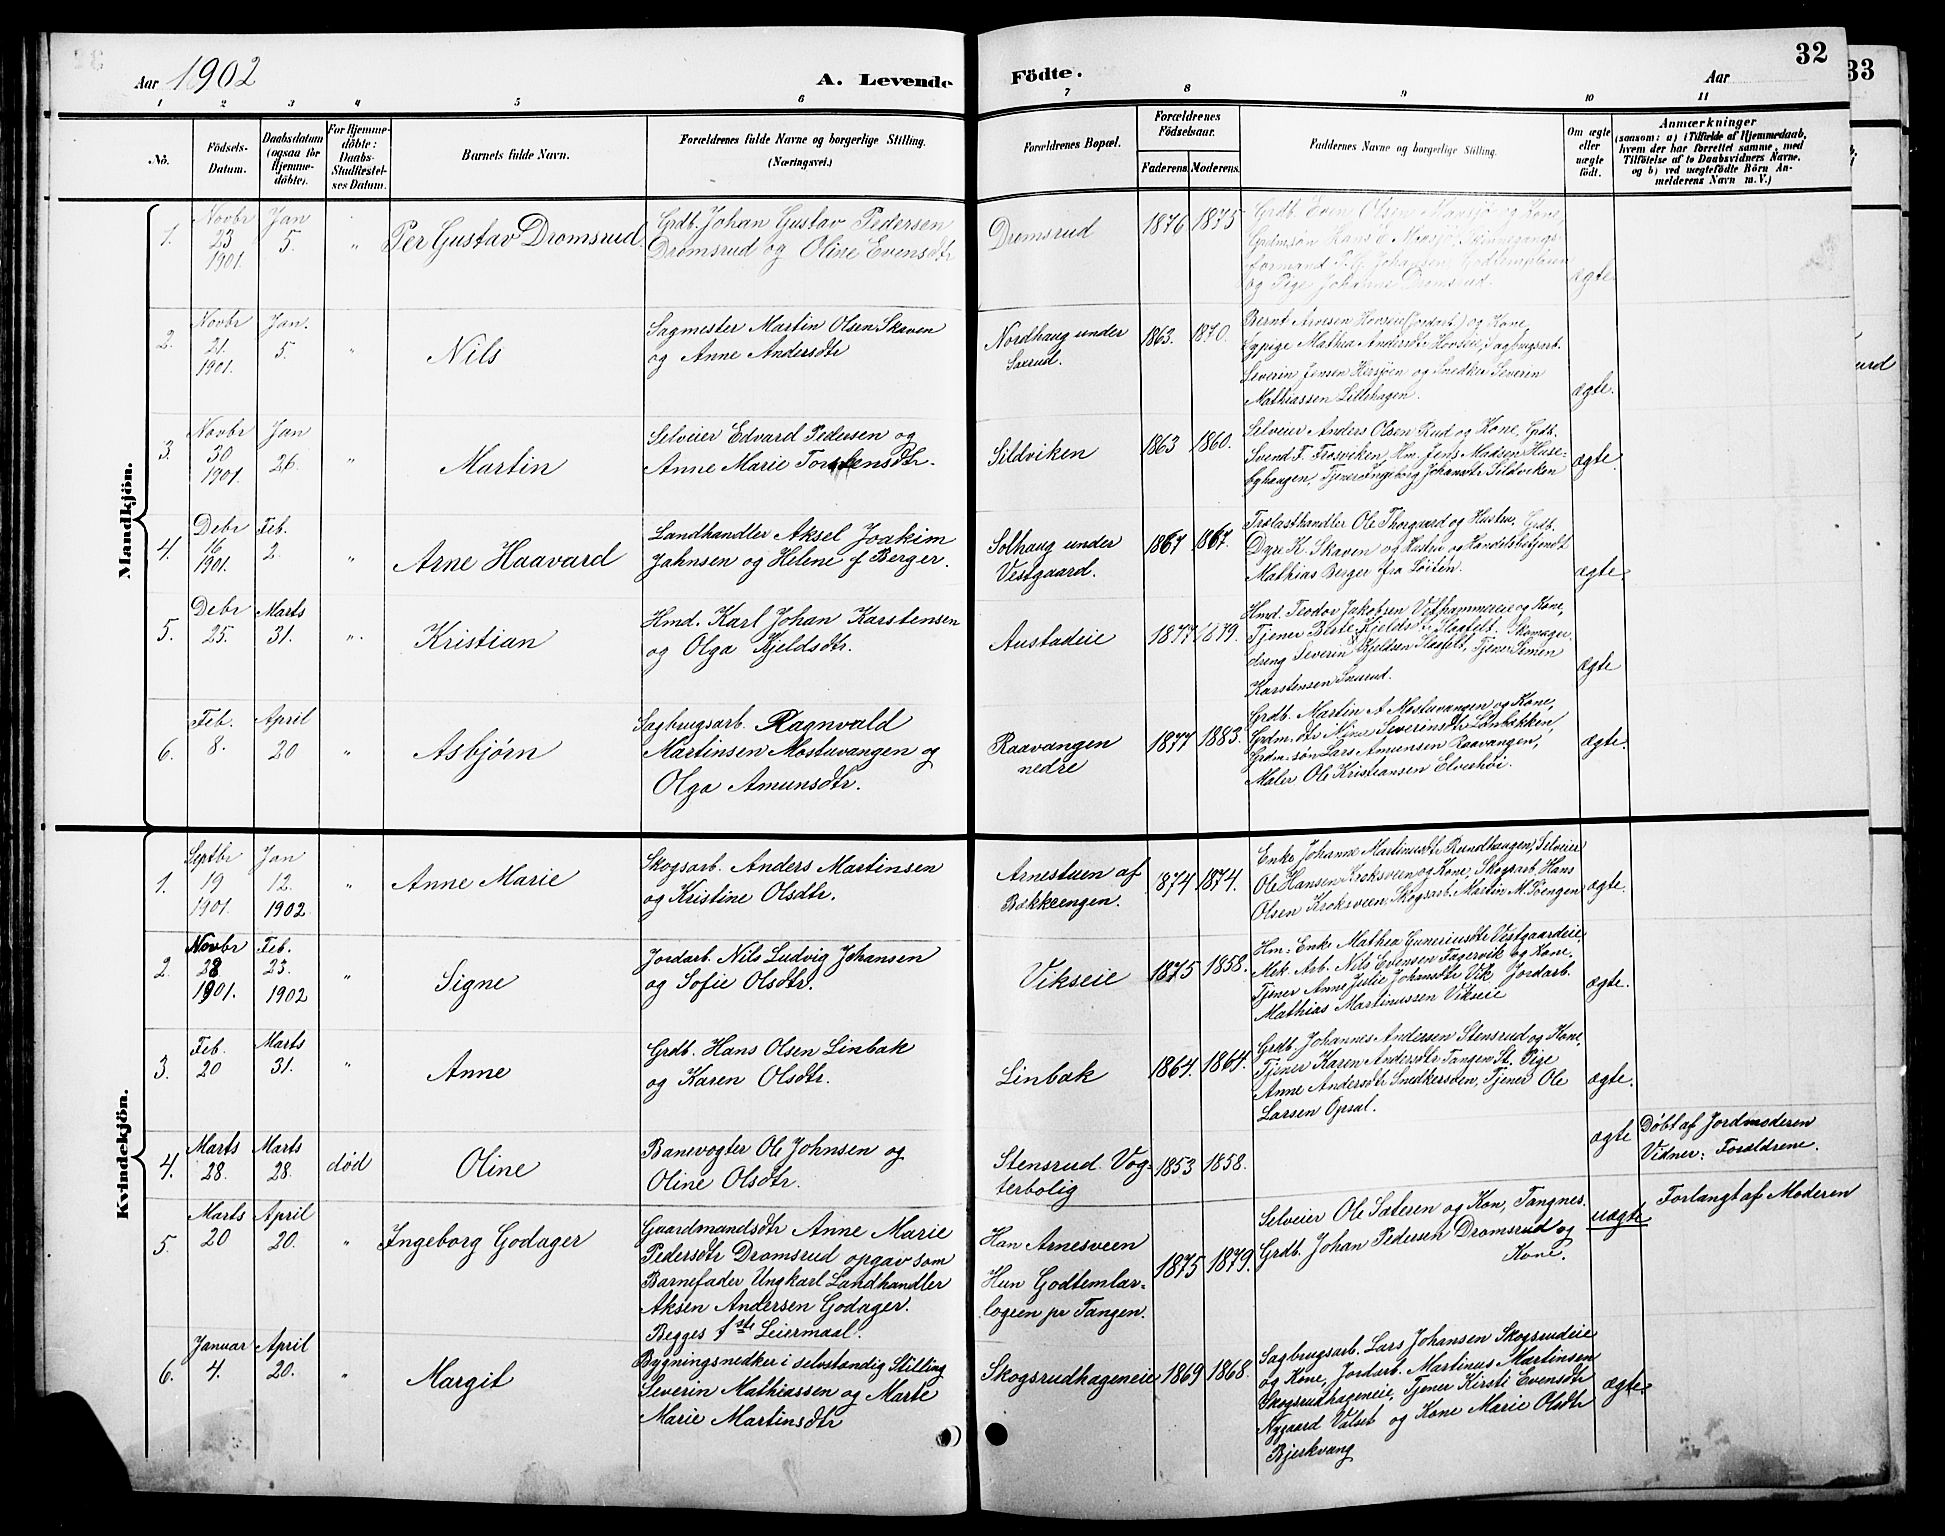 Aar 1902
A. Levende
Födte.
Aar
32
33
1 2 3 4 5 6 7 8 9 10 11
No.
Födsels-
Datum.
Daabsdatum
(ogsaa for
Hjemme-
döbte).
For Hjemme-
döbte:
Daabs-
Stadfæstel-
ses Datum.
Barnets fulde Navn.
Forældrenes fulde Navne og borgerlige Stilling.
(Næringsvei.)
Forældrenes Bopæl.
Forældrenes
Födselsaar.
Faderens.
Moderens.
Faddernes Navne og borgerlige Stilling.
Om ægte
eller
uægte
födt.
Anmærkninger
(saasom: a) i Tilfælde af Hjemmedaab,
hvem der har forrettet samme, med
Tilföielse af to Daabsvidners Navne,
og b) ved uægtefödte Börn An-
melderens Navn m. V.)
Mandkjön.
1. Novbr 23 1901. Jan 5. " Per Gustav Dromsrud
Grdb. Johan Gustav Pedersen
Dromsrud og Oline Evensdtr
Dromsrud 1876 1875
Grdb. Even Olsen Movsjö og Kone,
Grdmsön Hans E. Movsjö,
formand P. G. Johansen, Godtemplaren
og Pige Johanne Dromsrud.
ægte
2. Novbr 21. 1901. Jan. 5. " Nils
Sagmester Martin Olsen Skaven
og Anne Andersdtr
Nordhaug under
Saxrud.
1863. 1870.
Bernt Arvesen Hovseie (jordarb.) og Kone,
Sypige Mathea Andersdtr Hovseie, Sagbrugsarb.
Severin Jensen Kersjöen og Snedker Severin
Mathiassen Lillehagen.
ægte.
3. Novbr 30 1901. Jan 26. " Martin
Selveier Edvard Pedersen og
Anne Marie Torstensdtr.
Sildviken 1863 1860.
Selveier Anders Olsen Rud og Kone, Grdb.
Svend F. Frosviken, Hm. Jens Madsen Huse-
byhaugen, Tjener Ingeborg Johansdtr Sildviken
ægte.
4. Debr 16 1901. Feb. 2. " Arne Haavard
Landhandler Aksel Joakim
Jahnsen og Helene f Berger.
Solhaug under
Vestgaard.
1867 1867.
Trælasthandler Ole Thorgaard og Hustru, Grdb.
Dyre K. Skaven og Hustru og Handelsbetjendt
Mathias Berger fra Löiten.
ægte
5. Debr 25. Marts 31. " Kristian
Hmd. Karl Johan Karstensen
og Olga Kjeldsdtr.
Austadeie 1877 1879.
Hmd. Teodor Jakobsen Vithammereie og Kone,
Tjener Beate Kjeldsdtr Slaafelt. Skomager-
dreng Severin Kjeldsen Slaafelt, Tjener Simen
Karstensen Saxrud.
ægte
6. Feb. 8. April 20 " Asbjörn
Sagbrugsarb. Ragnvald
Martinsen Mostuvangen og
Olga Amunsdtr.
Raavangen
nedre
1877 1883.
Grdb. Martin A Mostuvangen og Kone,
Grdm. dtr Mine Severinsdtr Lönbakken
Grdm. sön Lars Amunsen Raavangen,
Maler Ole Kristiansen Elveshöi.
ægte.
Kvindekjön.
1. Septbr 19 1901. Jan 12. 1902 " Anne Marie
Skogsarb. Anders Martinsen
og Kristine Olsdtr.
Arnestuen af
Bækkeengen.
1874 1874.
Enke Johanne Martinusdtr Rundhaugen, Selveier
Ole Hansen Kroksveen og Kone, Skogsarb Hans
Olsen Kroksveen, Skogsarb. Martin M. Föengen
ægte.
2. Novbr 28 1901. Feb. 23. 1902 " Signe
Jordarb. Nils Ludvig Johansen
og Sofie Olsdtr.
Vikseie 1875 1858.
Hm. Enke Mathea Guneriusdtr Vestgaardeie,
Mek Arb. Nils Evensen Fagervik og Kone.
Tjener Anne Julie Johansdtr Vik Jordarb.
Mathias Martinussen Vikseie
ægte.
3. Feb. 20 Marts 31. " Anne
Grdb. Hans Olsen Linbak
og Karen Olsdtr.
Linbak 1864. 1864.
Grdb. Johannes Andersen Stensrud og Kone,
Tjener Karen Andersdtr Tangen St. Pige
Anne Andersdtr Snedkersveen, Tjener Ole
Larsen Opsal.
ægte.
4. Marts 28. Marts 28. död Oline
Banevogter Ole Johnsen og
Oline Olsdtr.
Stensrud Vog-
terbolig
1853 1858.
ægte
Döbt af Jordmoderen
Vidner: Forældrene.
5. Marts 20 April 20. " Ingeborg Godager
Gaardmandsdtr Anne Marie
Pedersdtr Dromsrud opgav som
Barnefader Ungkarl Landhandler
Aksen Andersen Godager.
Begges 1ste Leiermaal.
Han Arnesveen
Hun Godtemlar-
logren pr Tangen.
1875 1879.
Selveier Ole Sæteren og Kon, Tangnes.
Grdb. Johan Pedersen Dromsrud og
Kone.
uægte
Forlangt af Moderen
6. Januar 4. April 20. " Margit
Bygningsnedker i selvstændig Stilling
Severin Mathiassen og Marte
Marie Martinsdtr
Skogsrudhageneie 1869 1868.
Sagbrugsarb. Lars Johansen Skogsrudeie
og Kone, Jordarb. Martinus Martinsen
Skogsrudhageneie, Tjener Kirsti Evensdtr
Nygaard Valset og Kone Marie Olsdtr
Bjeskvang
ægte.